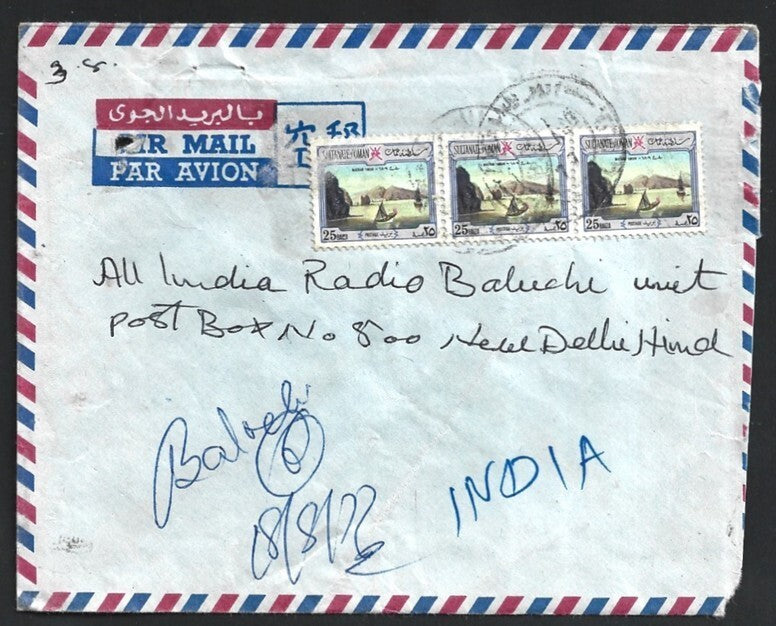 3.8.
بالبريد الجوى
AIR MAIL 空郵
PAR AVION
SULTANATE OF OMAN SULTANATE OF OMAN SULTANATE OF OMAN
25 BAIZA POSTAGE بريد ٢٥ 25 BAIZA POSTAGE بريد ٢٥ 25 BAIZA POSTAGE بريد ٢٥
All India Radio Baluchi unit
Post Box No 500 New Delhi Hind
Baluchi
6
18/8/77
INDIA